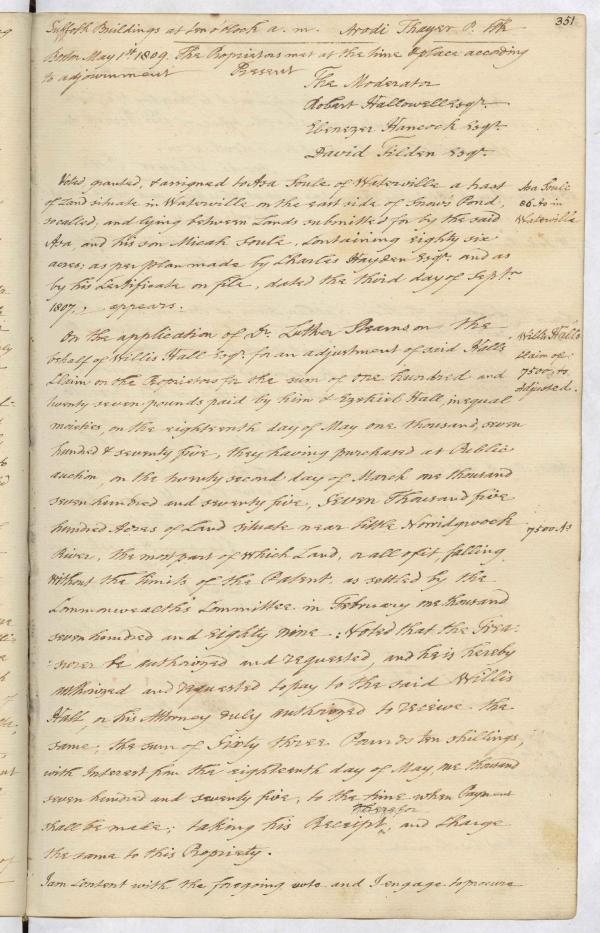 351
Suffolk Buildings at ten o'clock a. m. Arodi Thayer P. Clk
Boston May 1st 1809. The Proprietors met at the time & place according
to adjournment Present
The Moderator
Robert Hallowell Esqr.
Ebenezer Hancock Esqr.
David Tilden Esqr.
Voted, granted, & assigned to Asa Soule of Waterville a tract
of Land situate in Waterville on the east side of Snows Pond,
so called; and lying between Lands submitted for by the said
Asa, and his son Micah Soule, Containing eighty six
acres; as per plan made by Charles Hayden Esqr. and as
by his Certificate on file, dated the third day of Septr.
1807, appears.
Asa Soule
86 As in
Waterville
On the application of Dr. Luther Stearns on the
behalf of Willis Hall Esqr. for an adjustment of said Halls
Claim on the Proprietors for the sum of One hundred and
twenty seven pounds paid by him & Ezekiel Hall, in equal
moieties, on the eighteenth day of May one thousand, seven
hundred & seventy five, they having purchased at Public
auction, on the twenty second day of March one thousand
seven hundred and seventy five, Seven Thousand five
hundred Acres of Land situate near little Norridgwock
River, the most part of which Land, or all of it, falling
without the limits of the Patent, as settled by the
Commonwealths Committee in February one thousand
seven hundred and eighty nine. Voted that the Trea-
surer be authorized and requested, and he is hereby
authorized and requested to pay to the said Willis
Hall, or his Attorney duly authorized to receive the
same, the sum of Sixty three Pounds ten shillings,
with Interest from the eighteenth day of May, one thousand
seven hundred and seventy five, to the time when Payment
shall be made; taking his Receipt therefor, and Charge
the same to this Propriety.
Willis Halls
Claim of
7500 As
adjusted.
7500 As
I am Content with the foregoing vote and I engage to procure